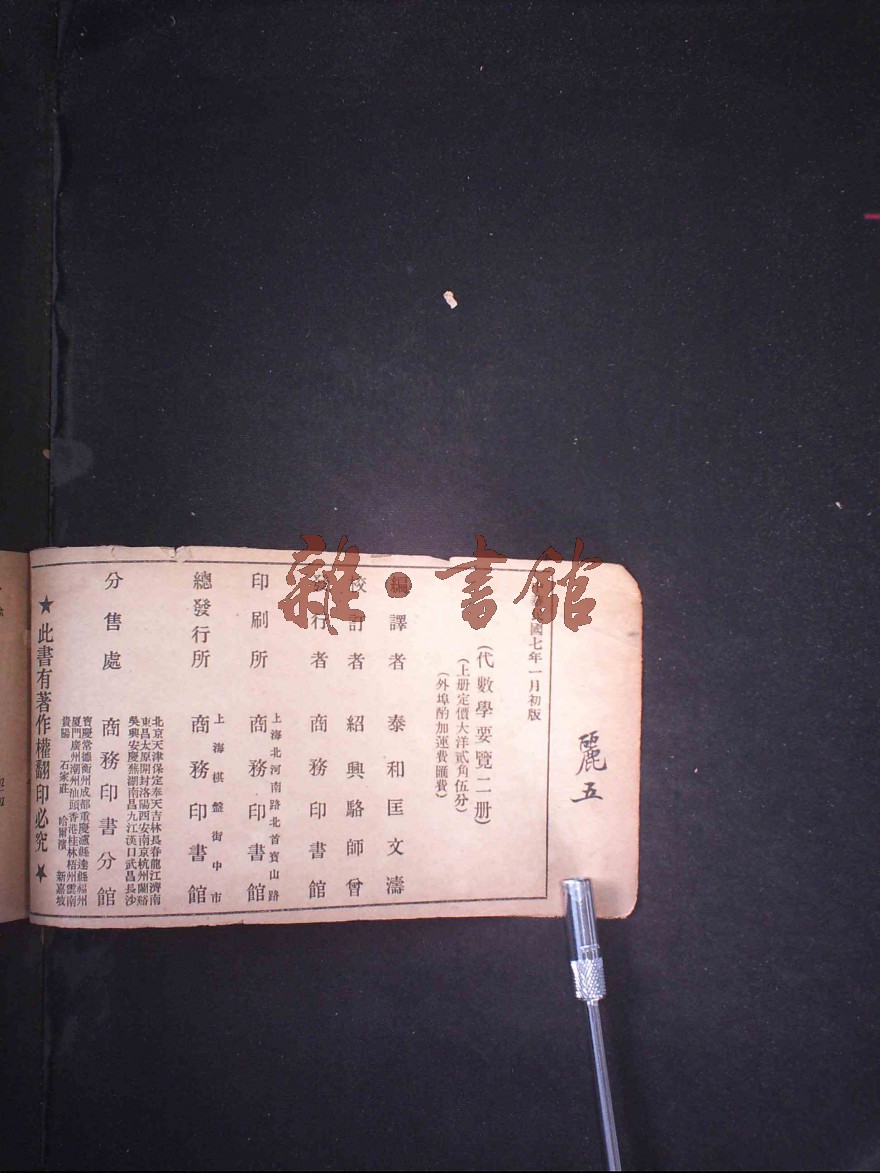 麗五
中華民國七年一月初版
(代數學要覽二册)
(上册定價大洋貳角伍分)
(外埠酌加運費匯費)
編譯者 泰和匡文濤
校訂者 紹興駱師曾
發行者 商務印書館
上海北河南路北首寶山路
印刷所 商務印書館
上海棋盤街中市
總發行所 商務印書館
北京天津保定奉天吉林長春龍江濟南
東昌太原開封洛陽西安南京杭州蘭谿
吳興安慶蕪湖南昌九江漢口武昌長沙
分售處 商務印書分館
寶慶常德衡州成都重慶瀘縣達縣福州
厦門廣州潮州汕頭香港桂林梧州雲南
貴陽 石家莊 哈爾濱 新嘉坡
★此書有著作權翻印必究★
雜·書館